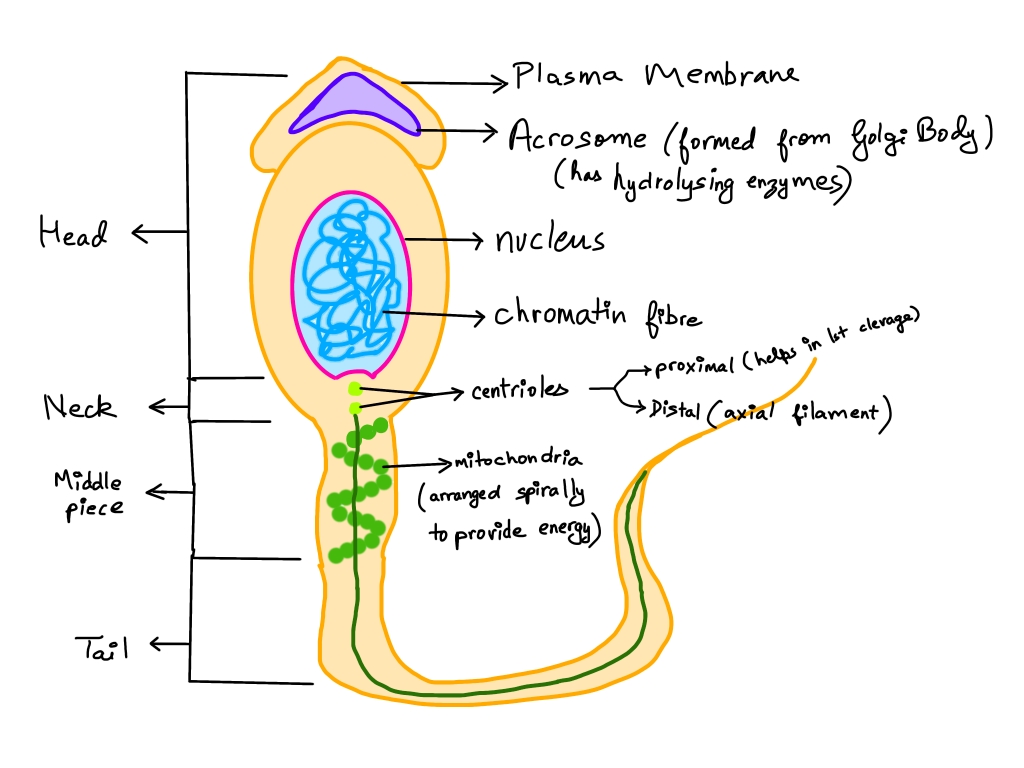 Plasma Membrane
Acrosome (formed from Golgi Body)
(has hydrolysing enzymes)
Head
nucleus
chromatin fibre
centrioles
proximal (helps in 1st clevage)
Distal (axial filament)
Neck
mitochondria
(arranged spirally
to provide energy)
Middle
piece
Tail